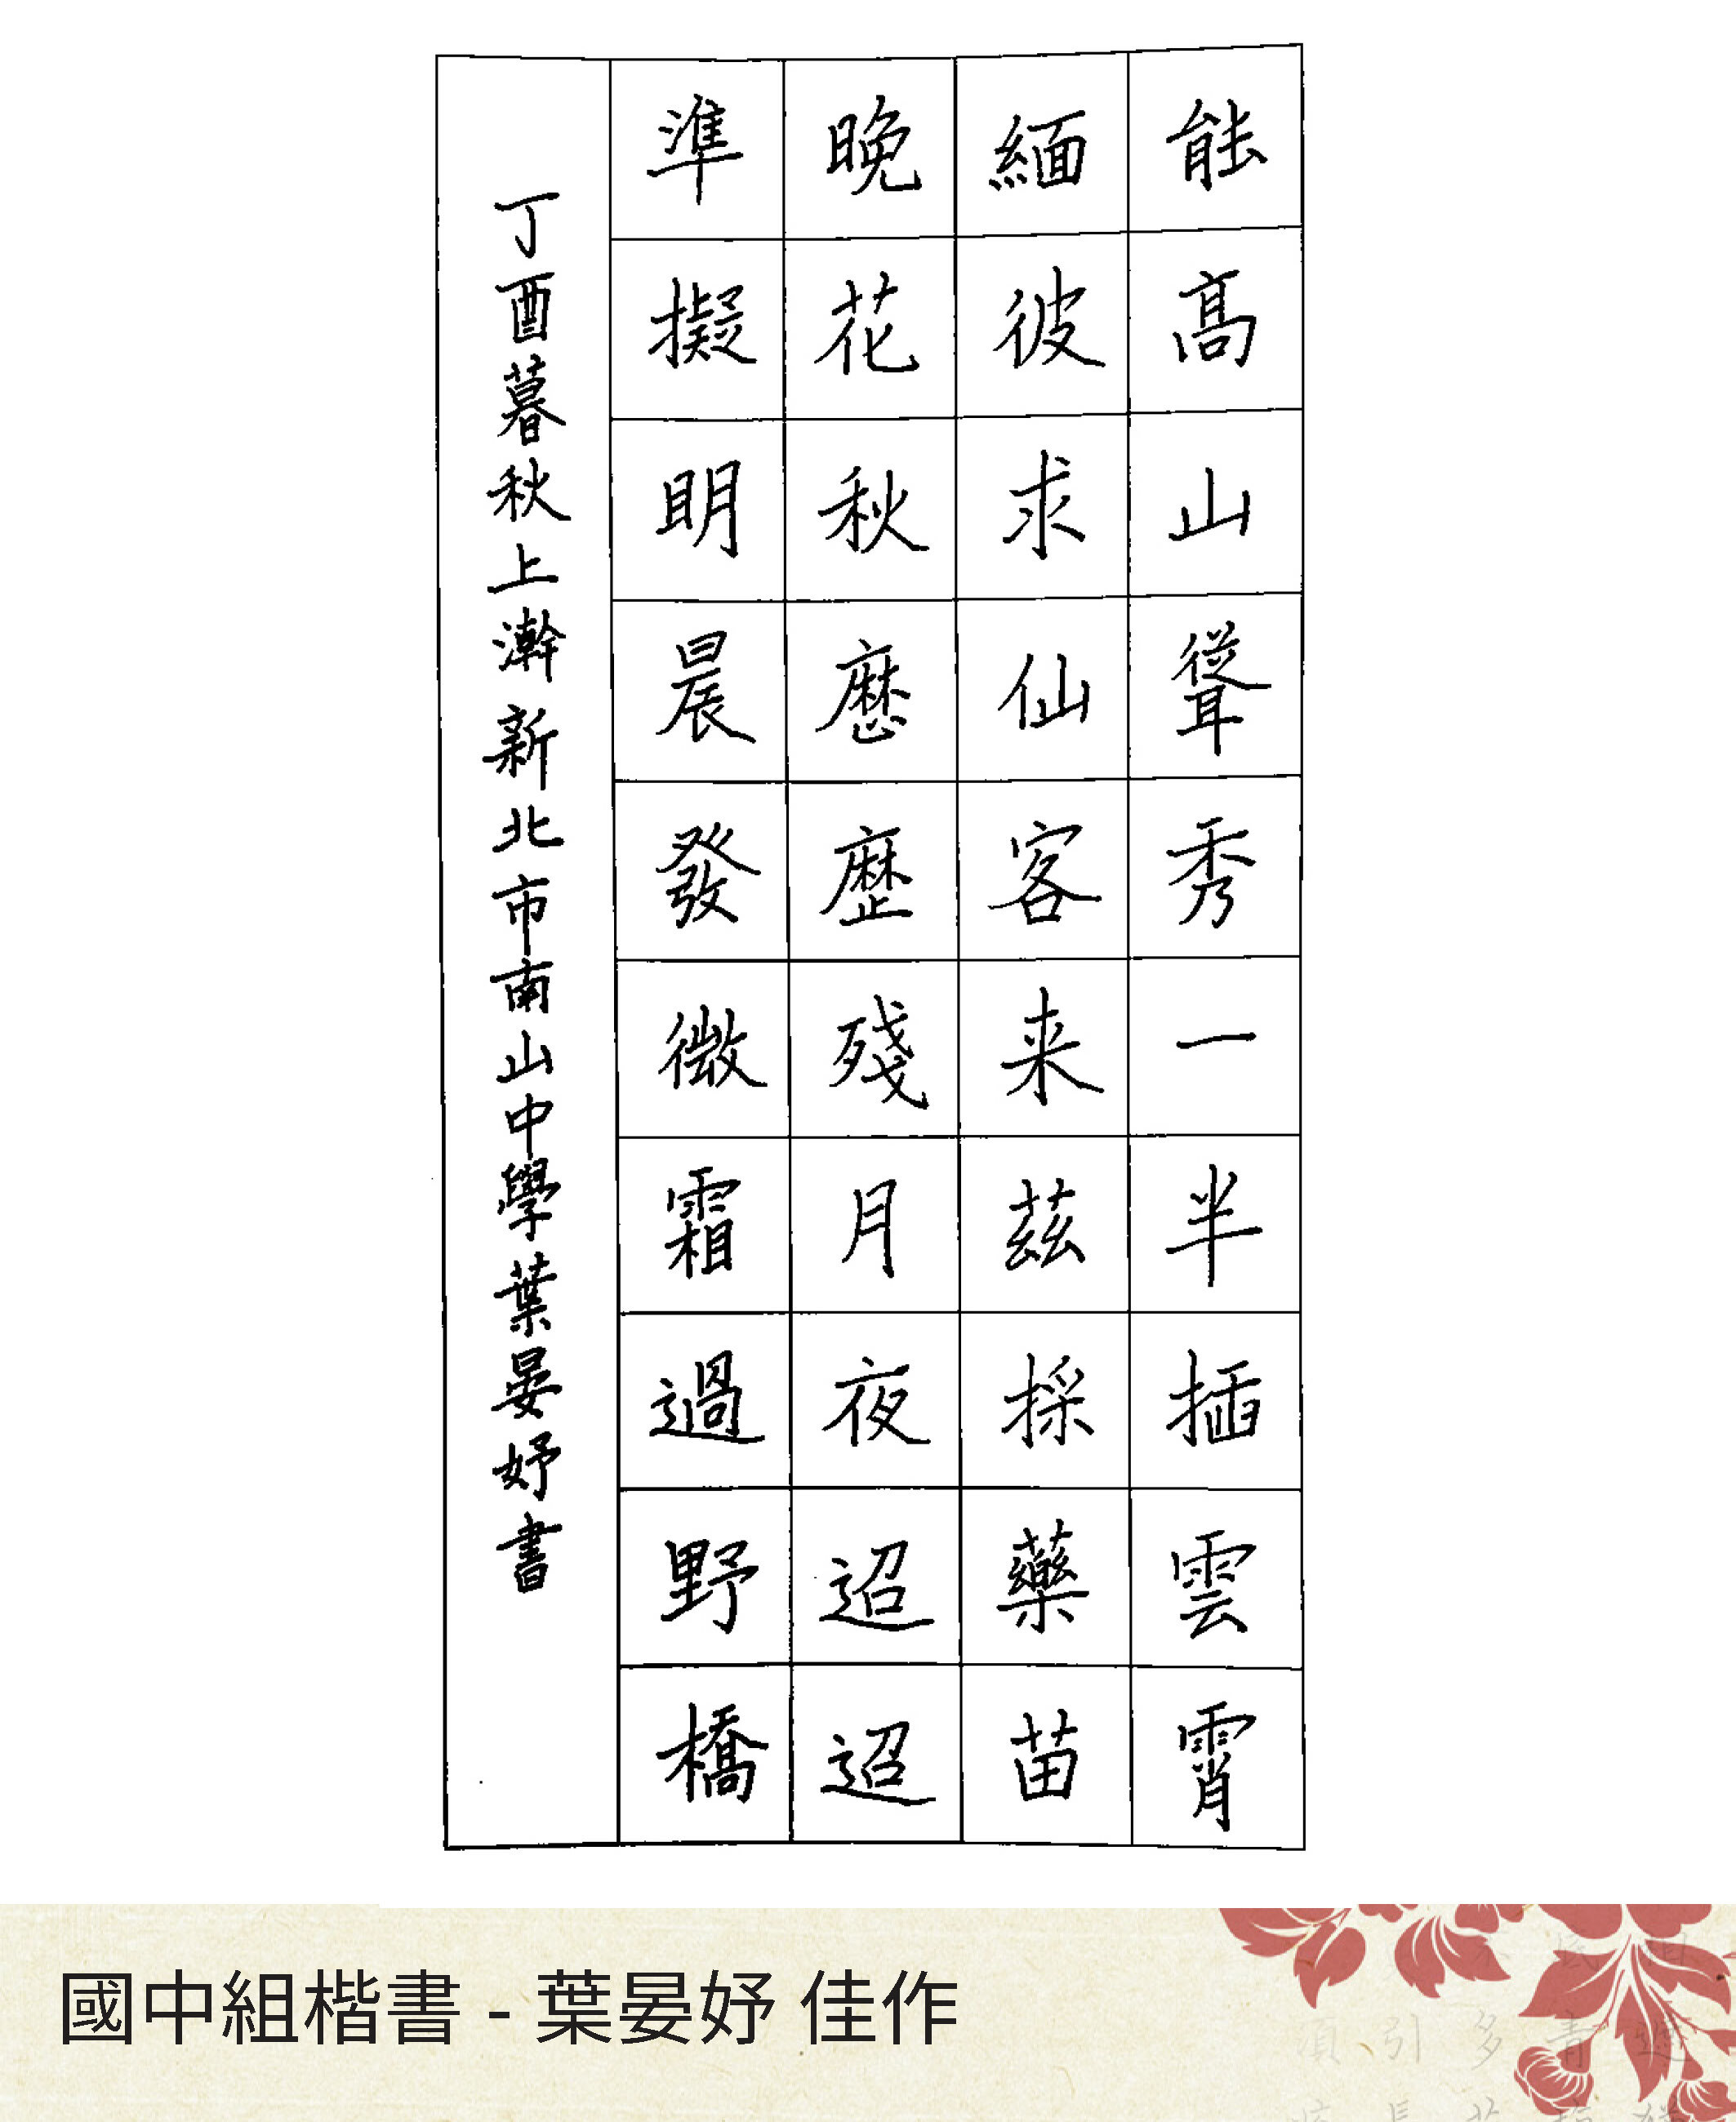 能高山聳秀一半插雲霄
緬彼求仙客来茲採藥苗
晚花秋懕歷殘月夜迢迢
準擬明晨發微霜過野橋
丁酉暮秋上澣新北市南山中學葉晏妤書
國中組楷書 - 葉晏妤 佳作